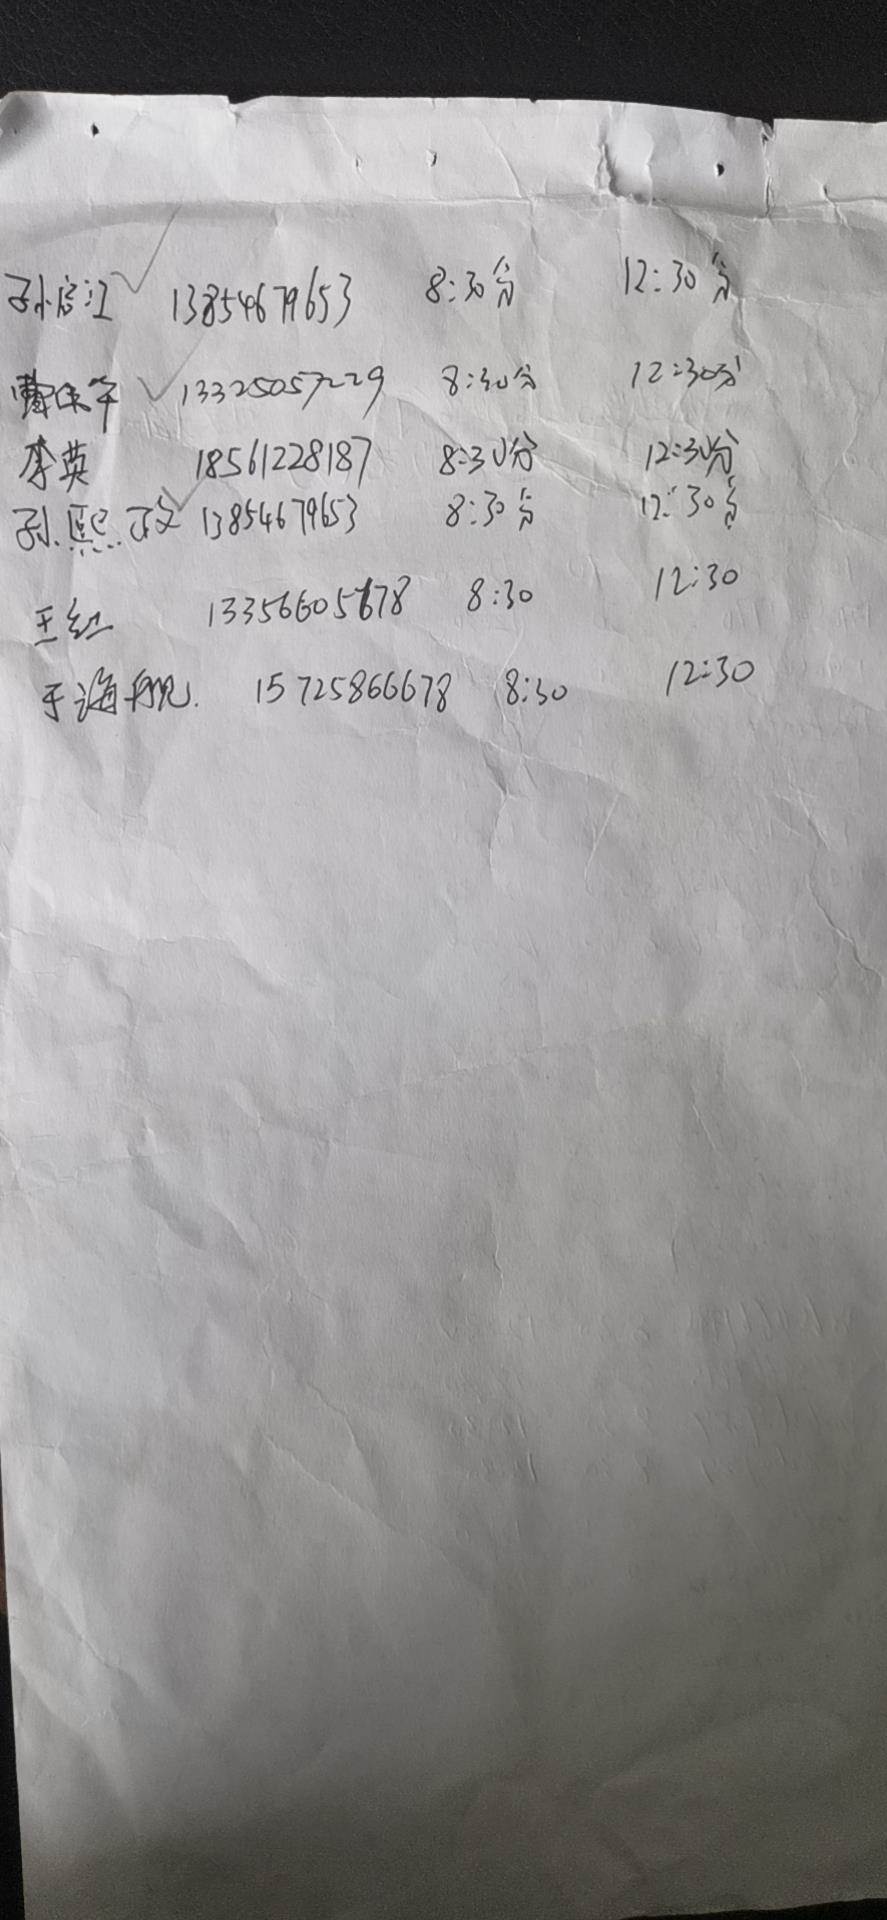 孙启江 ✓ 13854679653 8:30分 12:30分
曹保军 ✓ 13325057229 8:30分 12:30分
李英 18561228187 8:30分 12:30分
孙熙政 ✓ 13854679653 8:30分 12:30分
王红 13356605678 8:30 12:30
于海舰. 15725866678 8:30 12:30